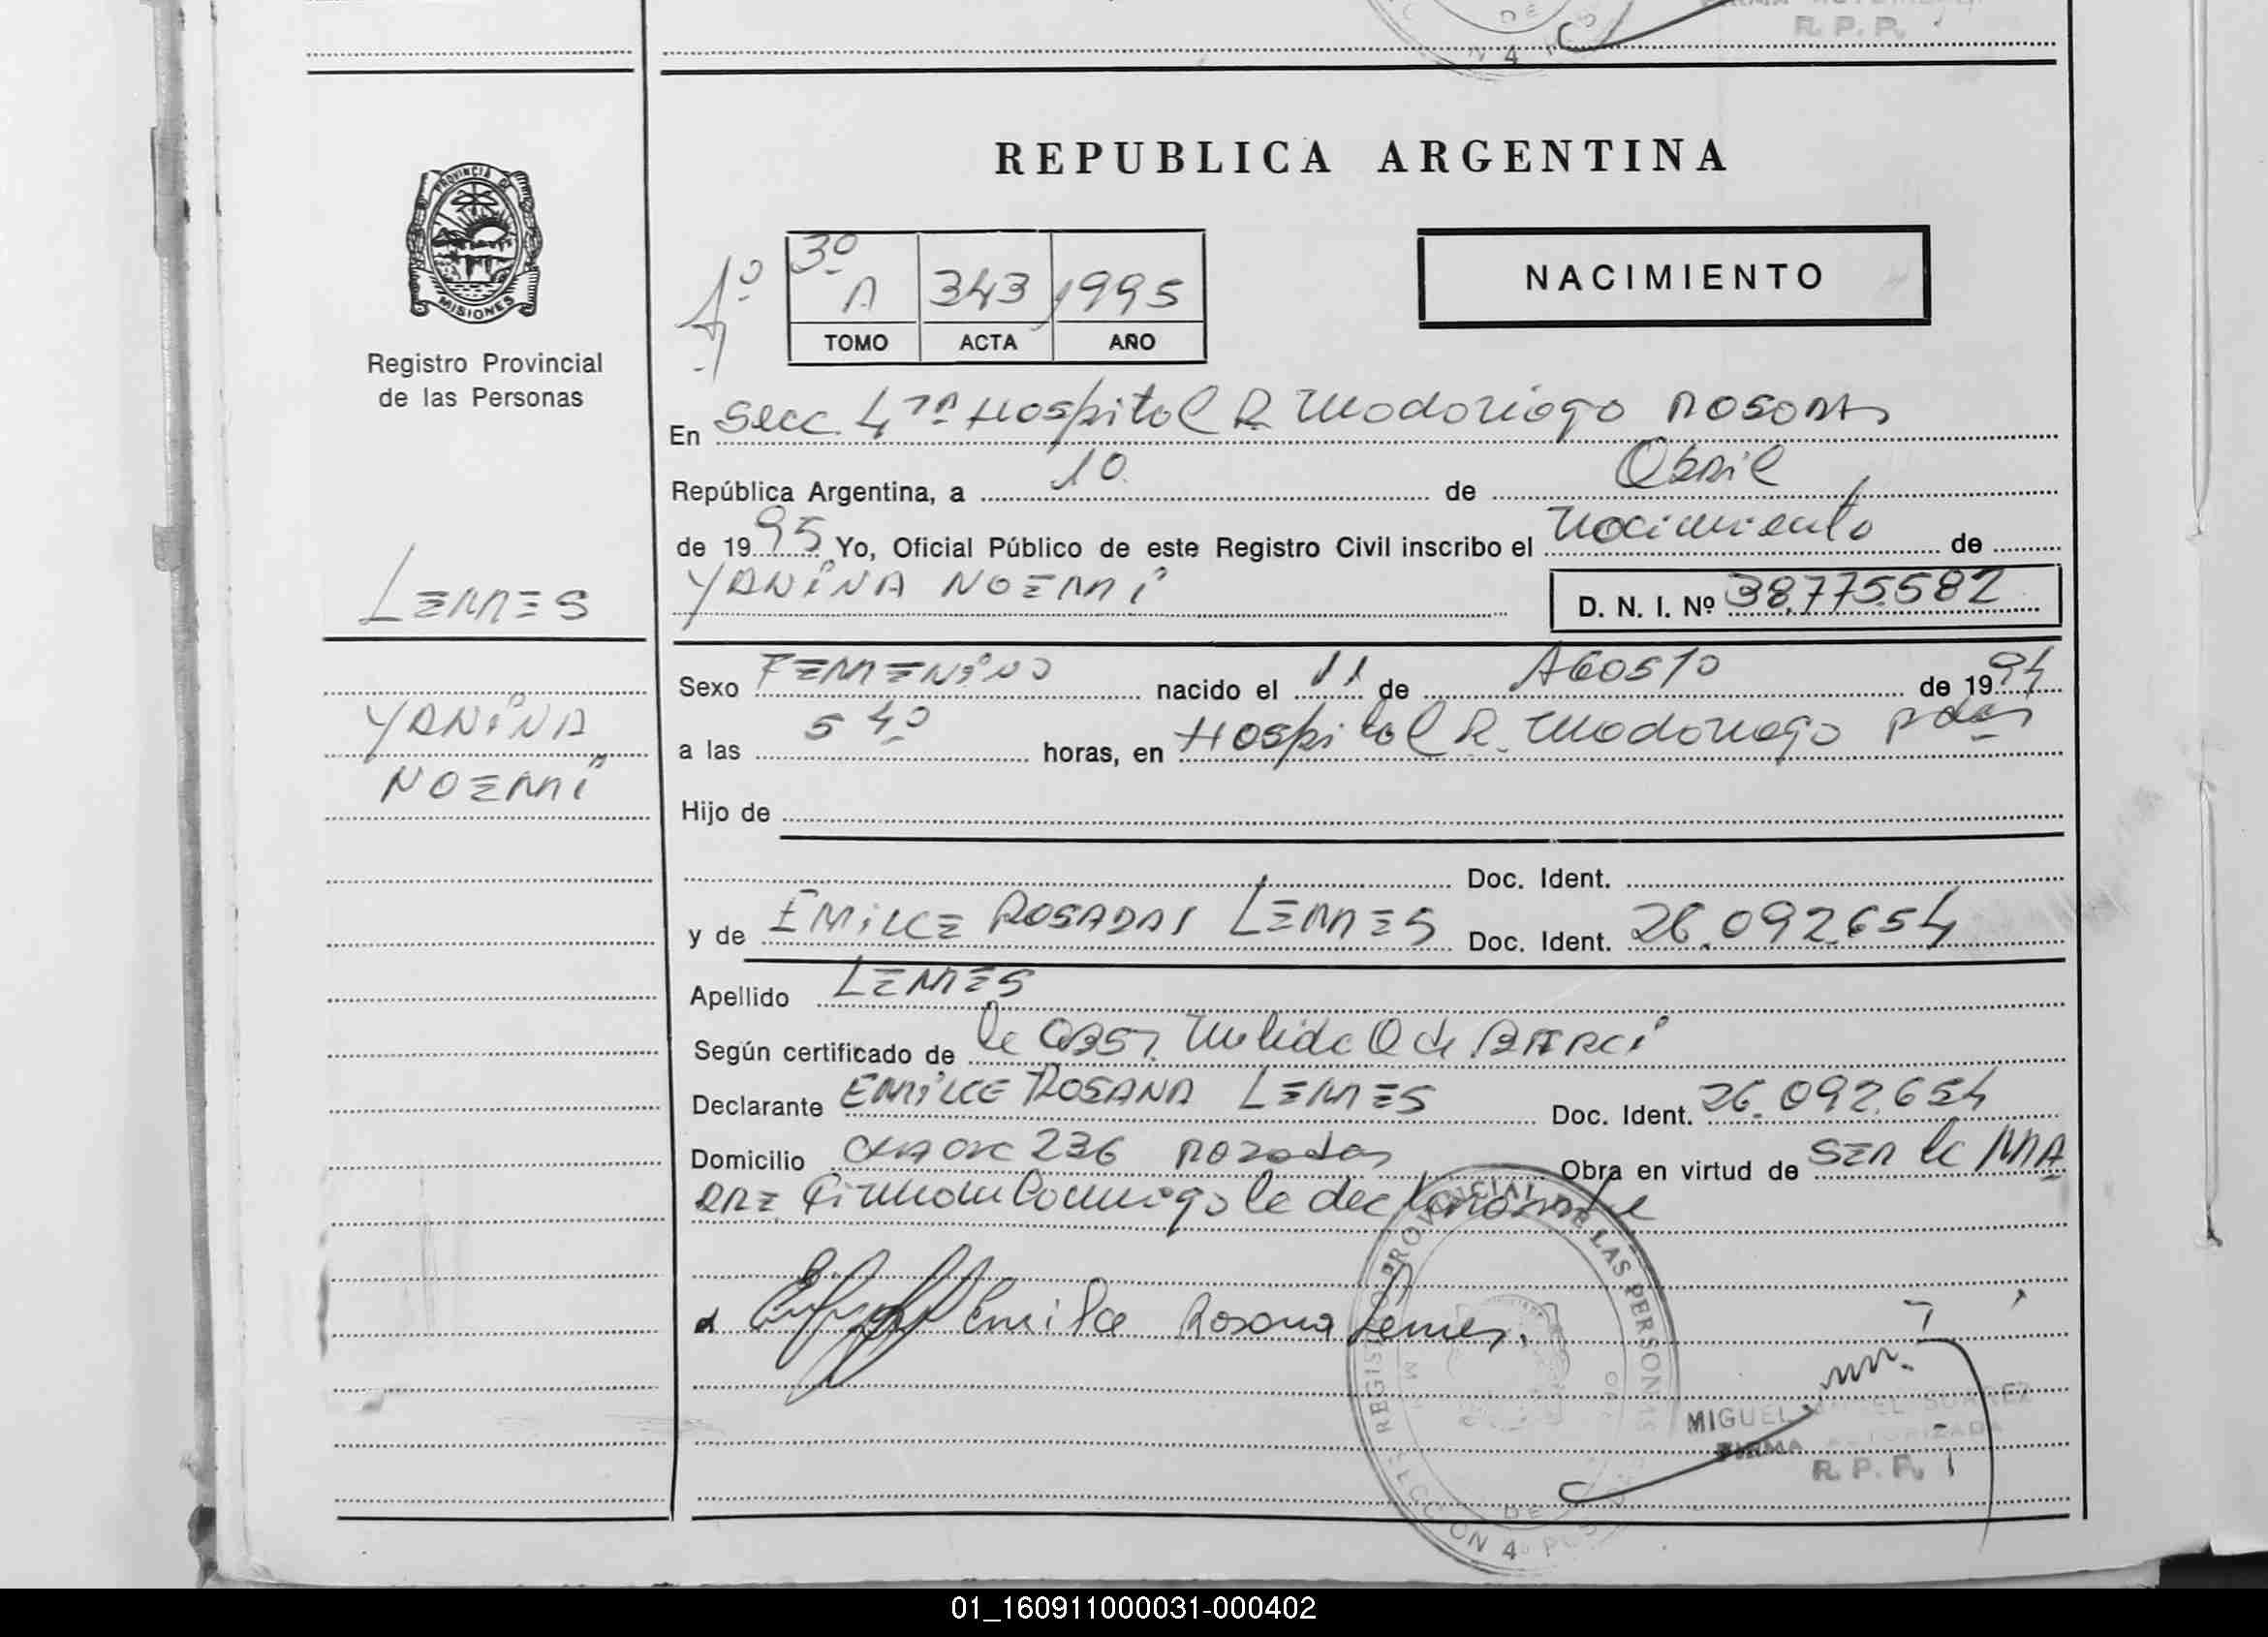 R. P. P.
N 4
REPUBLICA ARGENTINA
PROVINCIA DE
MISIONES
Registro Provincial
de las Personas
1º
3º
A 343 1995
TOMO ACTA AÑO
NACIMIENTO
En Secc. 4ta Hospital R. Madariaga Posadas
República Argentina, a 10 de Abril
de 1995 Yo, Oficial Público de este Registro Civil inscribo el nacimiento de
YANINA NOEMÍ
D. N. I. Nº 38.775.582
LEMES
YANINA
NOEMÍ
Sexo FEMENINO nacido el 11 de AGOSTO de 1994
a las 5 40 horas, en Hospital R. Madariaga Pdas
Hijo de
Doc. Ident.
y de EMILCE LEMES Doc. Ident. 26.092.654
Apellido LEMES
Según certificado de la OBST. de
Declarante EMILCE ROSANA LEMES Doc. Ident. 26.092.654
Domicilio 236 Posadas Obra en virtud de SER la MA
DRE Firma Conmigo la declarante
Emilce Rosana Lemes.
REGISTRO PROVINCIAL DE LAS PERSONAS
SECCION 4
MIGUEL SUAREZ
FIRMA AUTORIZADA
R. P. P.
01_160911000031-000402